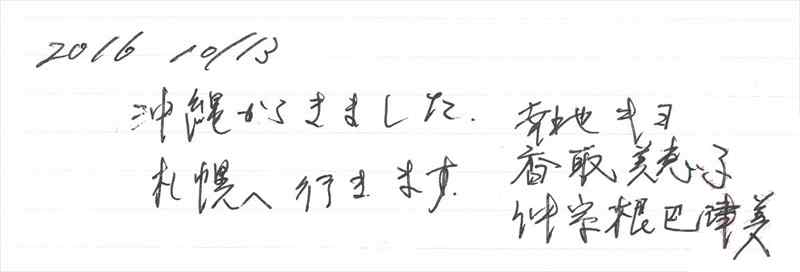 2016 10/13
沖縄からきました.
札幌へ行きます.
幸地キヨ
香取美恵子
仲宗根巴津美